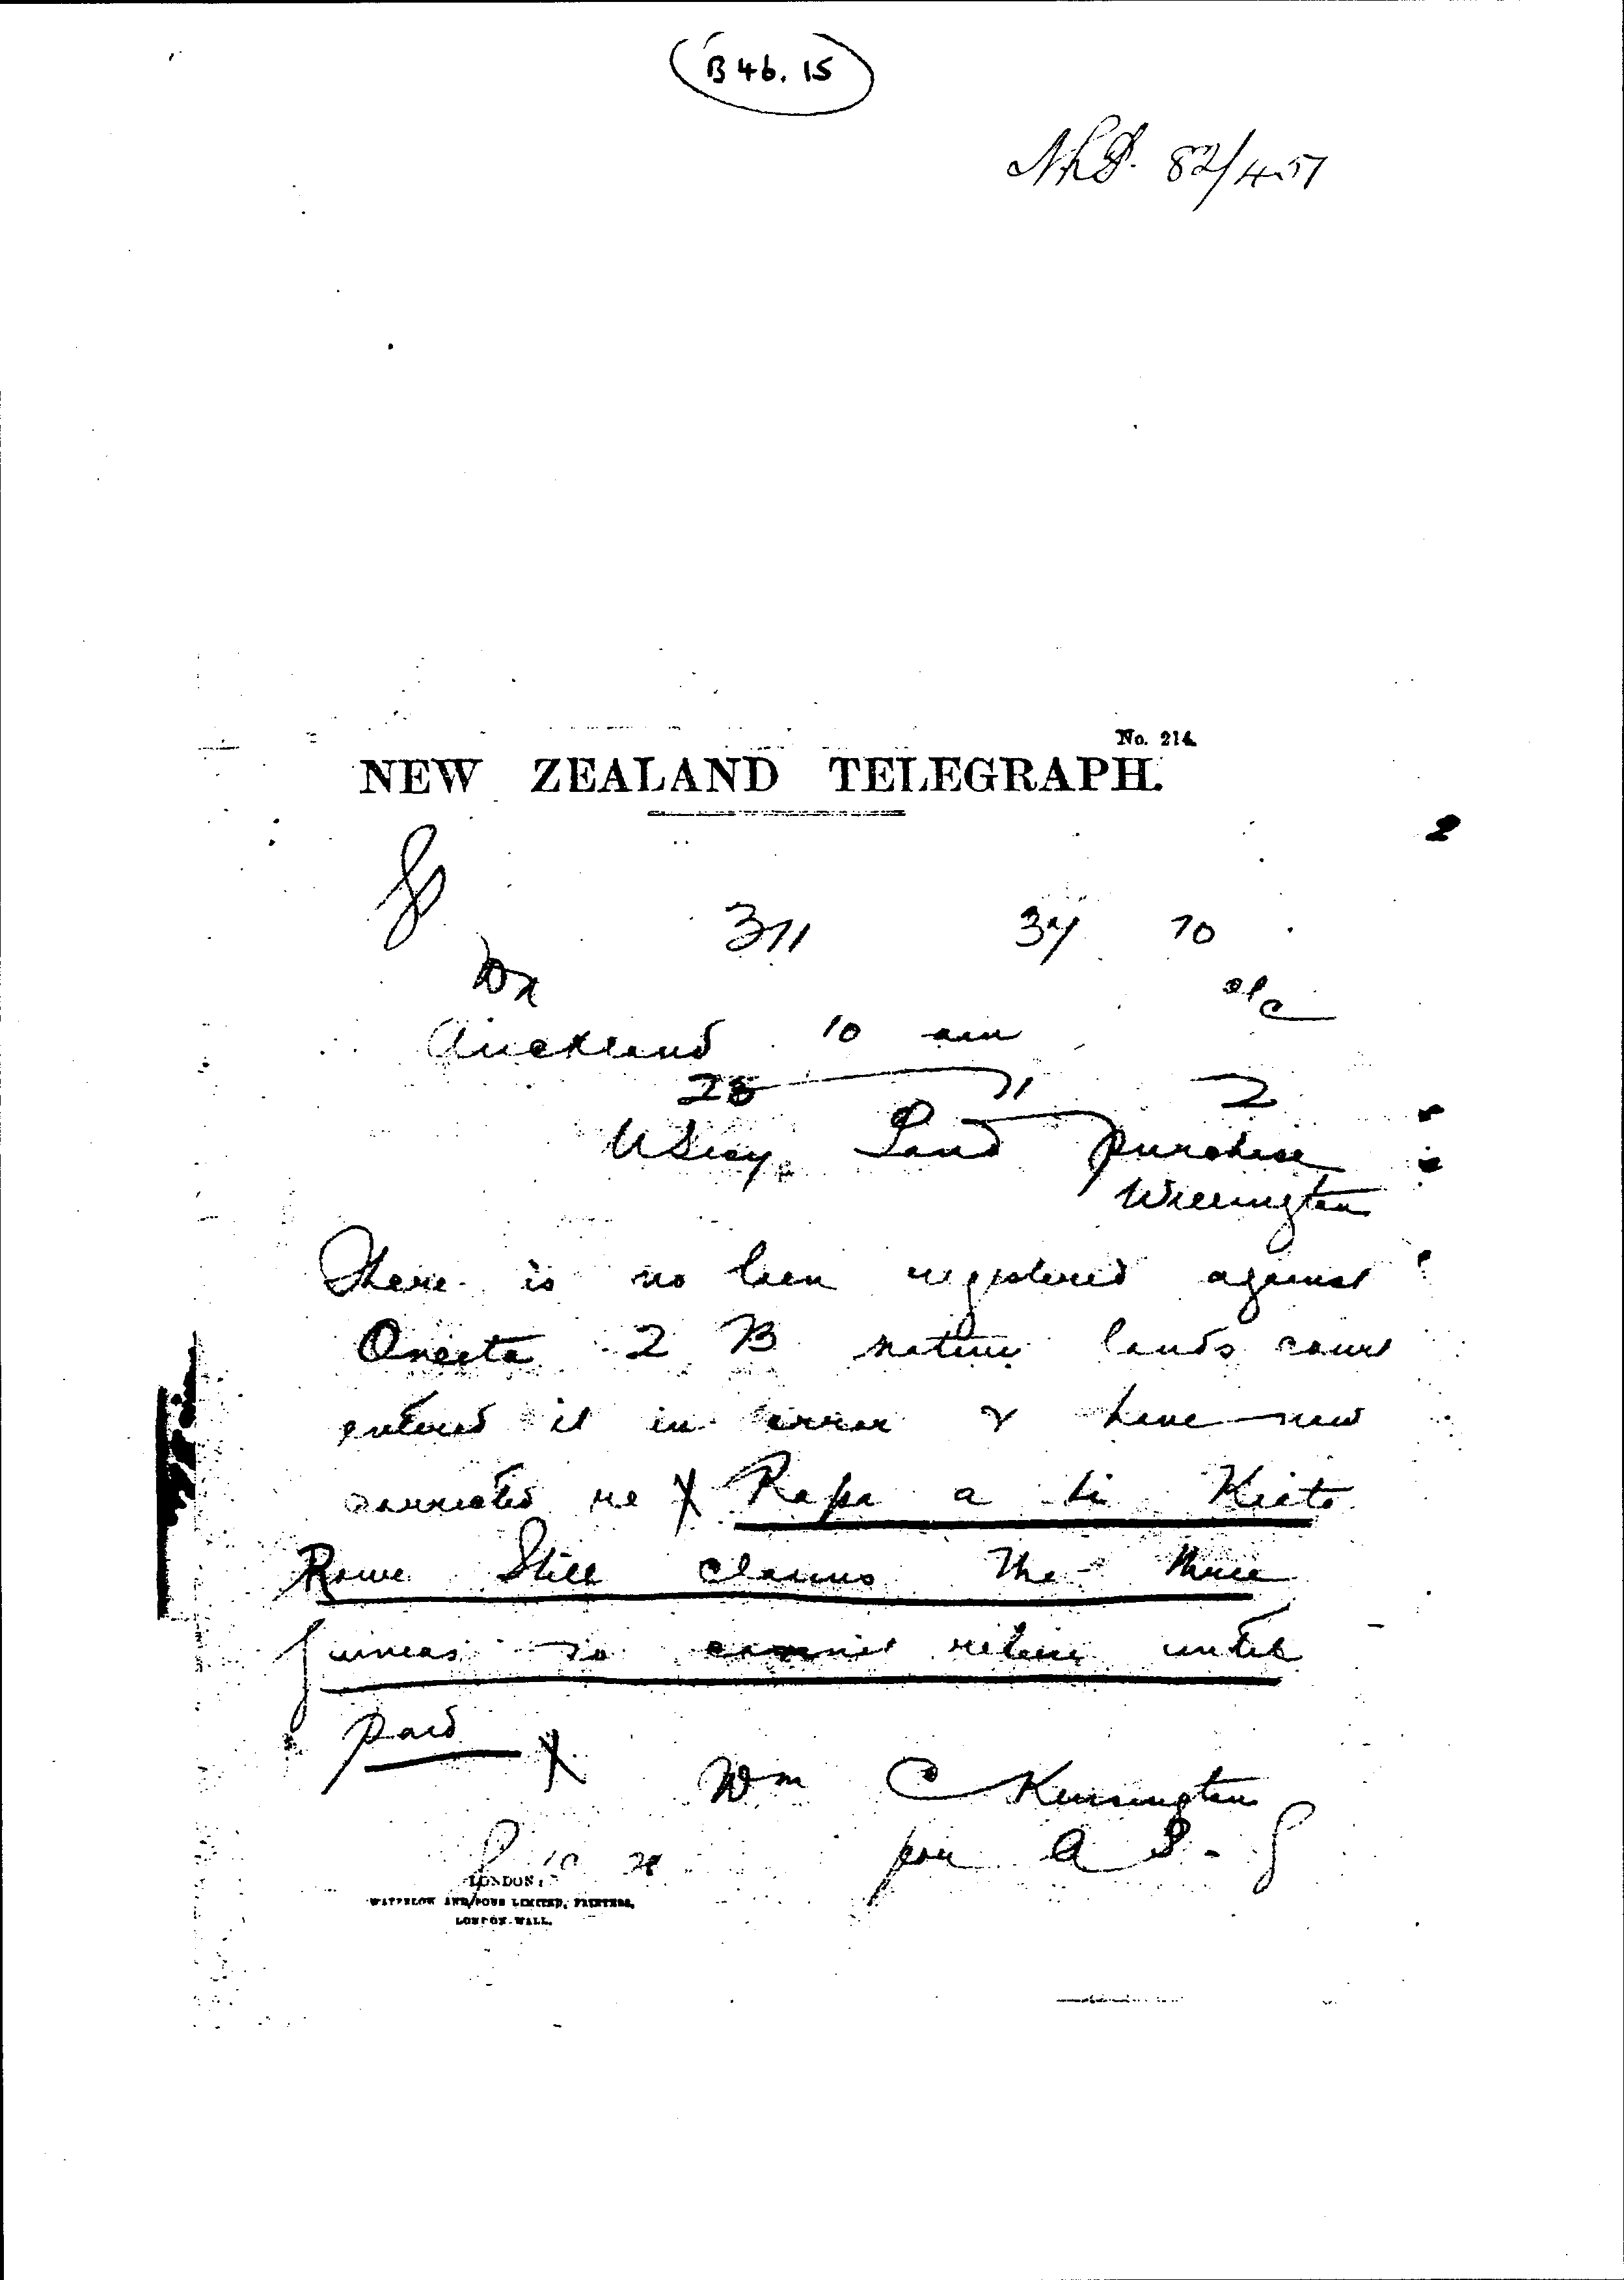 B 46. 15
NLP. 82/451
No. 214.
NEW ZEALAND TELEGRAPH.
311 34 70
Auckland 10 am
28 11 2
USecy Land purchase
Wellington
There is no lien registered against
Oneeta 2 B native lands court
entered it in error & have now
corrected re X Rapa a te Kiato
Rowe Still claims The three
Guineas so cannot retire until
paid X
Wm C Kensington
LONDON:
WATERLOW AND SONS LIMITED, PRINTERS,
LONDON WALL.